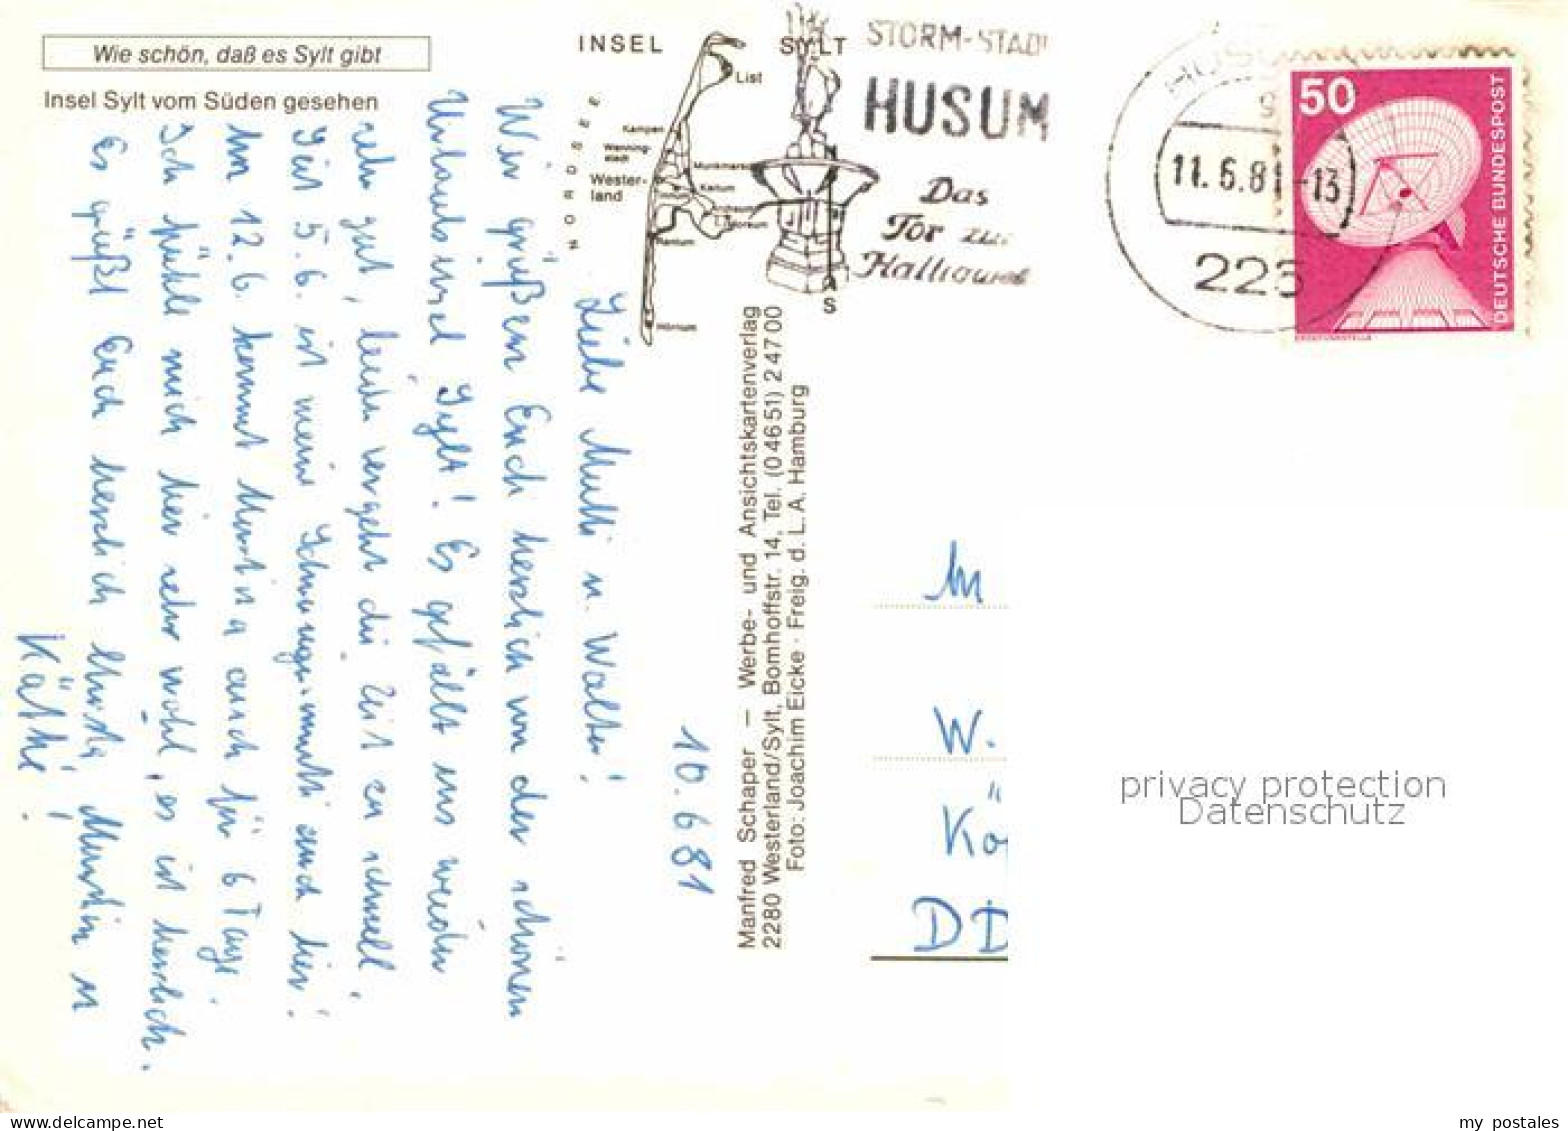 Wie schön, daß es Sylt gibt
Insel Sylt vom Süden gesehen
INSEL SYLT
NORDSEE
List
Kampen
Wenning-
stedt
Munkmarsch
Wester-
land
Keitum
Morsum
Rantum
Hörnum
S
STORM-STADT
HUSUM
Das
Tor zur
Halligwelt
HUSUM
11.6.81-13
225
50
DEUTSCHE BUNDESPOST
10.6.81
Liebe Mutti u. Walter!
Wir grüßen Euch herzlich von der schönen
Urlaubsinsel Sylt! Es gefällt uns wieder
sehr gut, leider vergeht die Zeit zu schnell.
Seit 5.6. ist meine Schwiegermutti auch hier!
Am 12.6. kommt Martina auch für 6 Tage.
Ich fühle mich hier sehr wohl, es ist herrlich.
Es grüßt Euch herzlich Martin u
Käthe!
Manfred Schaper — Werbe- und Ansichtskartenverlag
2280 Westerland/Sylt, Bomhoffstr. 14, Tel. (04651) 24700
Foto: Joachim Eicke · Freig. d. L.A. Hamburg
W.
Kö
DD
privacy protection
Datenschutz
www.delcampe.net
my_postales